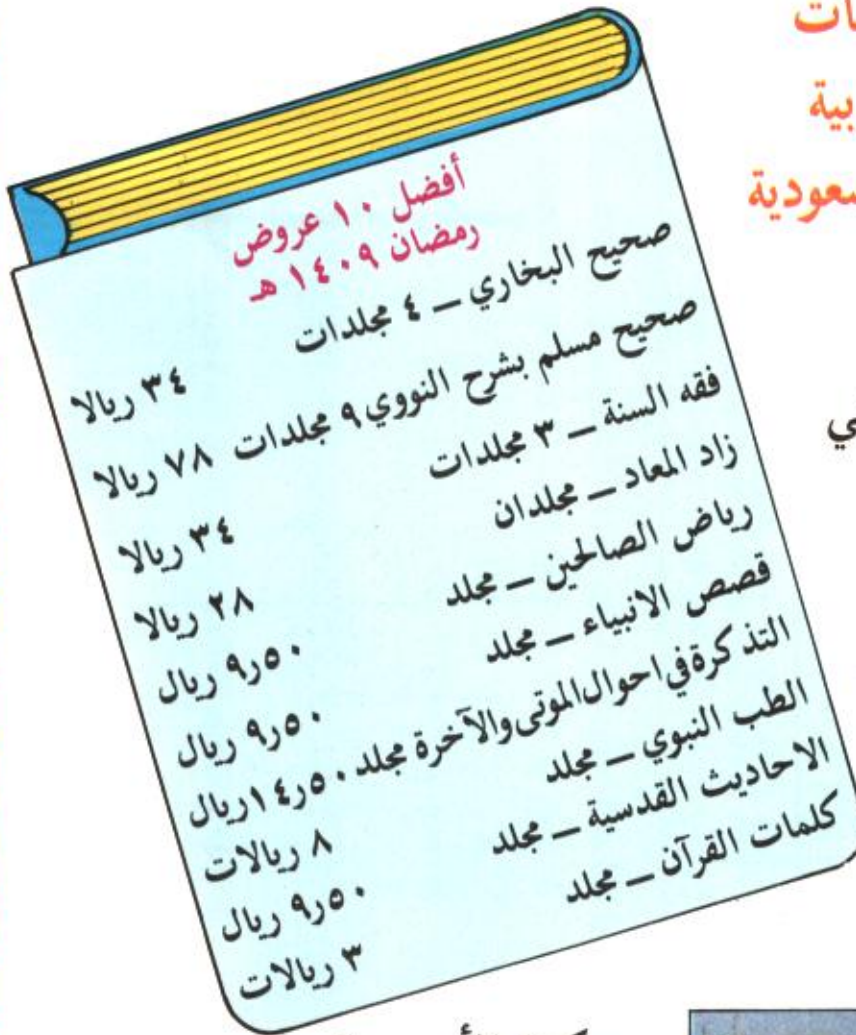 أفضل ١٠ عروض
رمضان ١٤٠٩ هـ
صحيح البخاري — ٤ مجلدات ٣٤ ريالا
صحيح مسلم بشرح النووي ٩ مجلدات ٧٨ ريالا
فقه السنة — ٣ مجلدات ٣٤ ريالا
زاد المعاد — مجلدان ٢٨ ريالا
رياض الصالحين — مجلد ٩٫٥٠ ريال
قصص الانبياء — مجلد ٩٫٥٠ ريال
التذكرة في احوال الموتى والآخرة مجلد ١٤٫٥٠ ريال
الطب النبوي — مجلد ٨ ريالات
الاحاديث القدسية — مجلد ٩٫٥٠ ريال
كلمات القرآن — مجلد ٣ ريالات